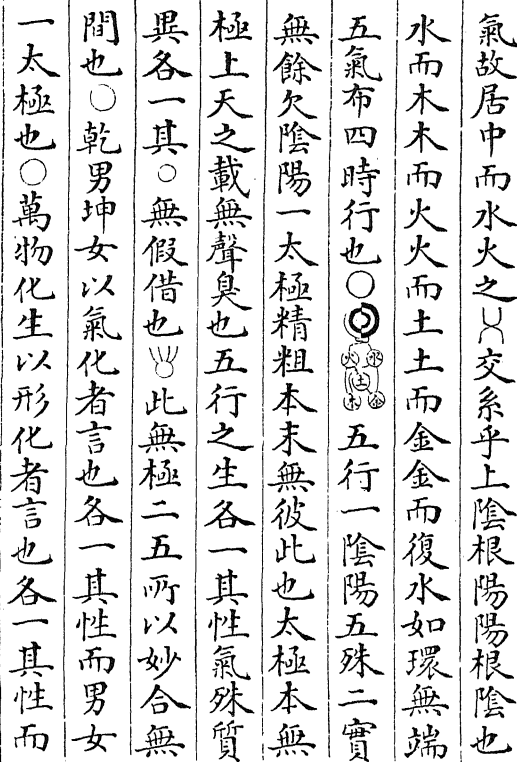 氣故居中而水火之交系乎上陰根陽陽根陰也
水而木木而火火而土土而金金而復水如環無端
五氣布四時行也○水火土木金五行一陰陽五殊二實
無餘欠陰陽一太極精粗本末無彼此也太極本無
極上天之載無聲臭也五行之生各一其性氣殊質
異各一其○無假借也此無極二五所以妙合無
間也○乾男坤女以氣化者言也各一其性而男女
一太極也○萬物化生以形化者言也各一其性而